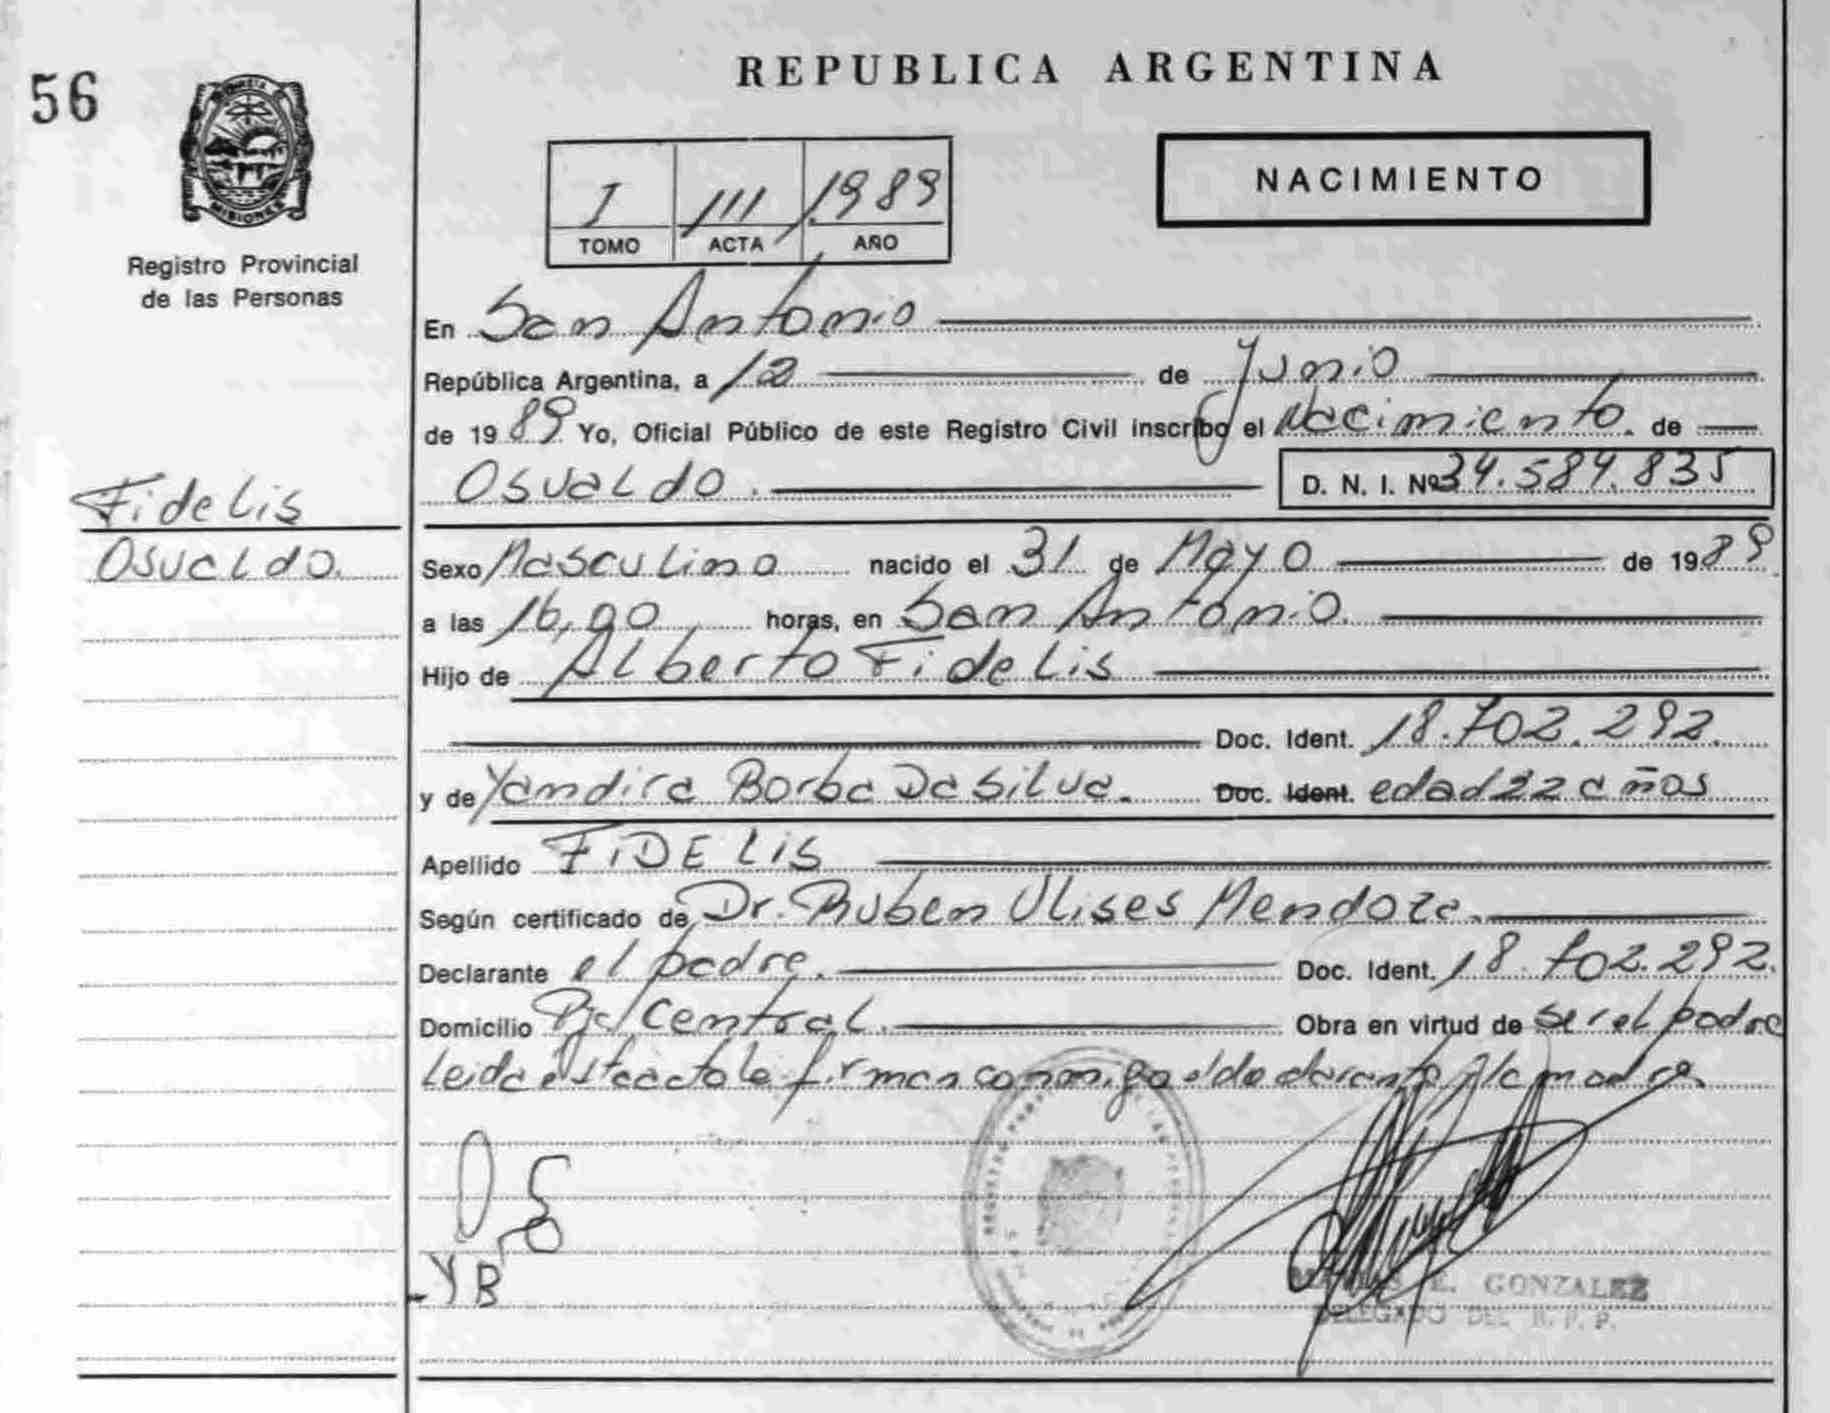 56
REPUBLICA ARGENTINA
MISIONES
Registro Provincial
de las Personas
I 111 1989
TOMO ACTA AÑO
NACIMIENTO
En San Antonio
República Argentina, a 12 de Junio
de 1989 Yo, Oficial Público de este Registro Civil inscribo el Nacimiento. de
Osvaldo. D. N. I. Nº 34.584.835
Fidelis
Osvaldo.
Sexo Masculino nacido el 31 de Mayo de 1989
a las 16,00 horas, en San Antonio.
Hijo de Alberto Fidelis
Doc. Ident. 18.702.292.
y de Yandira Borba Da Silva. Doc. Ident. edad 22 años
Apellido FIDELIS
Según certificado de Dr. Ruben Ulises Mendoza.
Declarante el padre. Doc. Ident. 18.702.292.
Domicilio Pje Central. Obra en virtud de ser el padre
Leida esta acta la firman conmigo el declarante y la madre.
Y B
E. GONZALEZ
DELEGADO DEL R. P. P.